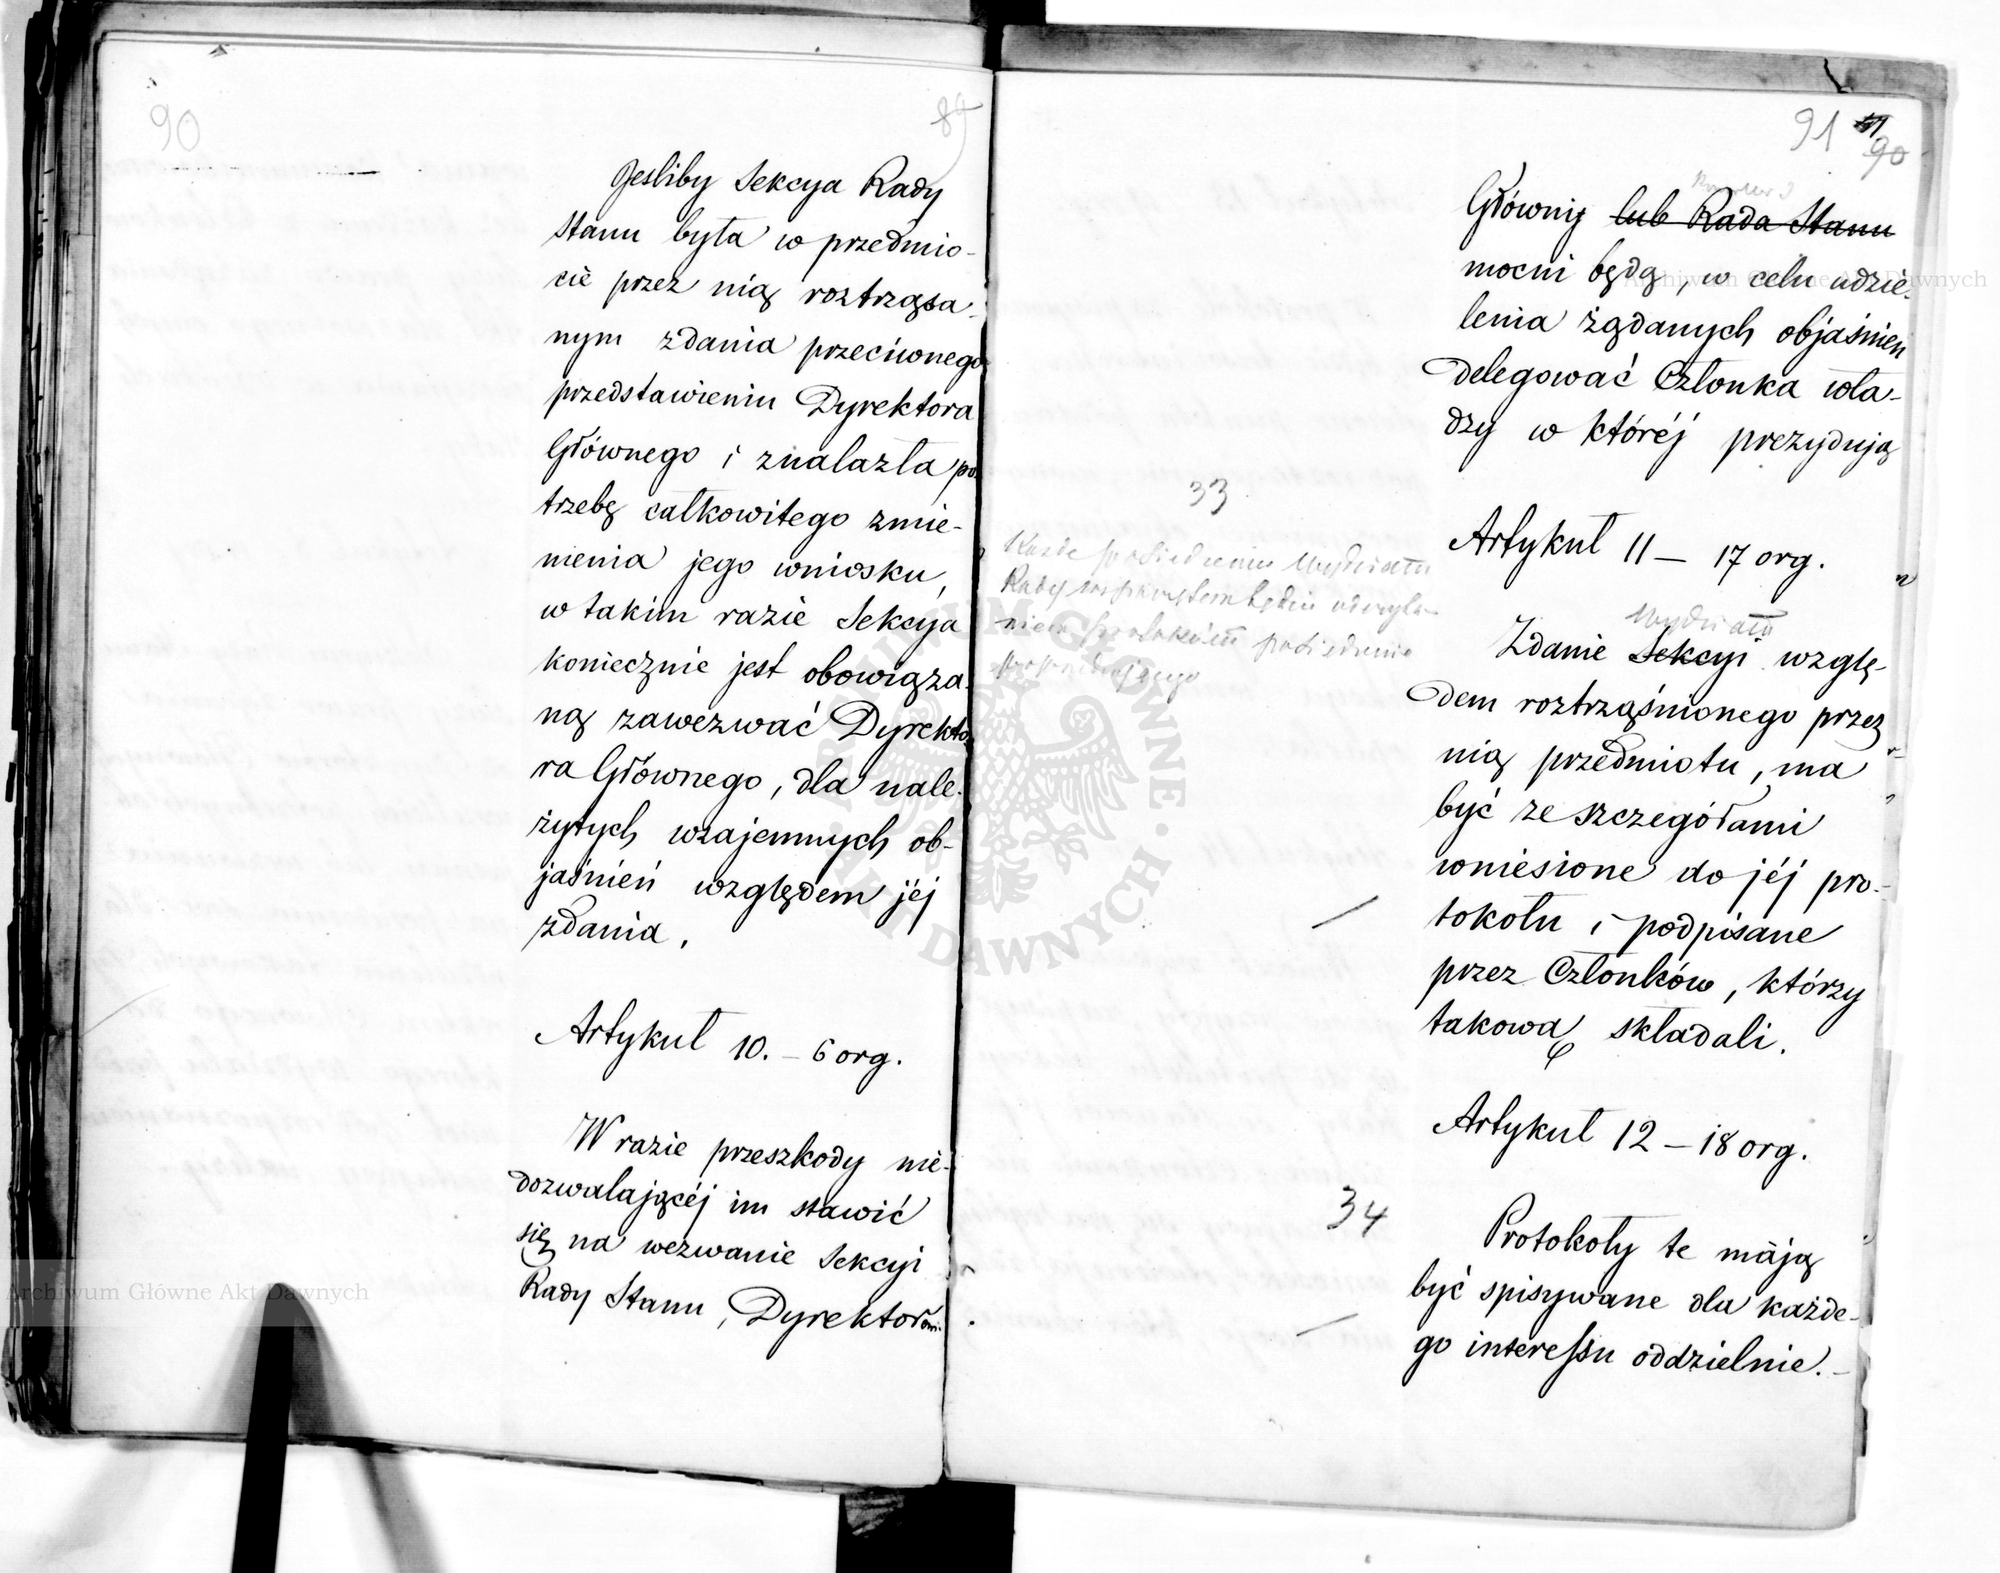 90
89
Jesliby Sekcya Rady
Stanu była w przedmio-
cie przez nią roztrząsa-
nym zdania przeciwnego
przedstawieniu Dyrektora
Głównego i znalazła po-
trzebę całkowitego zmie-
nienia jego wniosku,
w takim razie Sekcya
koniecznie jest obowiąza-
ną zawezwać Dyrekto-
ra Głównego, dla nale-
żytych wzajemnych ob-
jaśnień względem jéj
zdania.
Artykuł 10. – 6 org.
W razie przeszkody nie-
dozwalającéj im stawić
się na wezwanie Sekcyi
Rady Stanu, Dyrektorowie
91 90
Główni lub Rada Stanu
mocni będą, w celu udzie-
lenia żądanych objaśnień
delegować Członka wła-
dzy w któréj prezydują
33
Każde posiedzenie Wydziału
Rady będzie odczyta-
niem protokółu posiedzenia
poprzedniego
Artykuł 11 – 17 org.
Wydziału
Zdanie Sekcyi wzglę-
dem roztrząśnionego przez
nią przedmiotu, ma
być ze szczegółami
wniesione do jéj pro-
tokołu i podpisane
przez Członków, którzy
takową składali.
Artykuł 12 – 18 org.
34
Protokoły te mają
być spisywane dla każde-
go interessu oddzielnie. –
Archiwum Główne Akt Dawnych
Archiwum Główne Akt Dawnych
ARCHIWUM GŁÓWNE AKT DAWNYCH